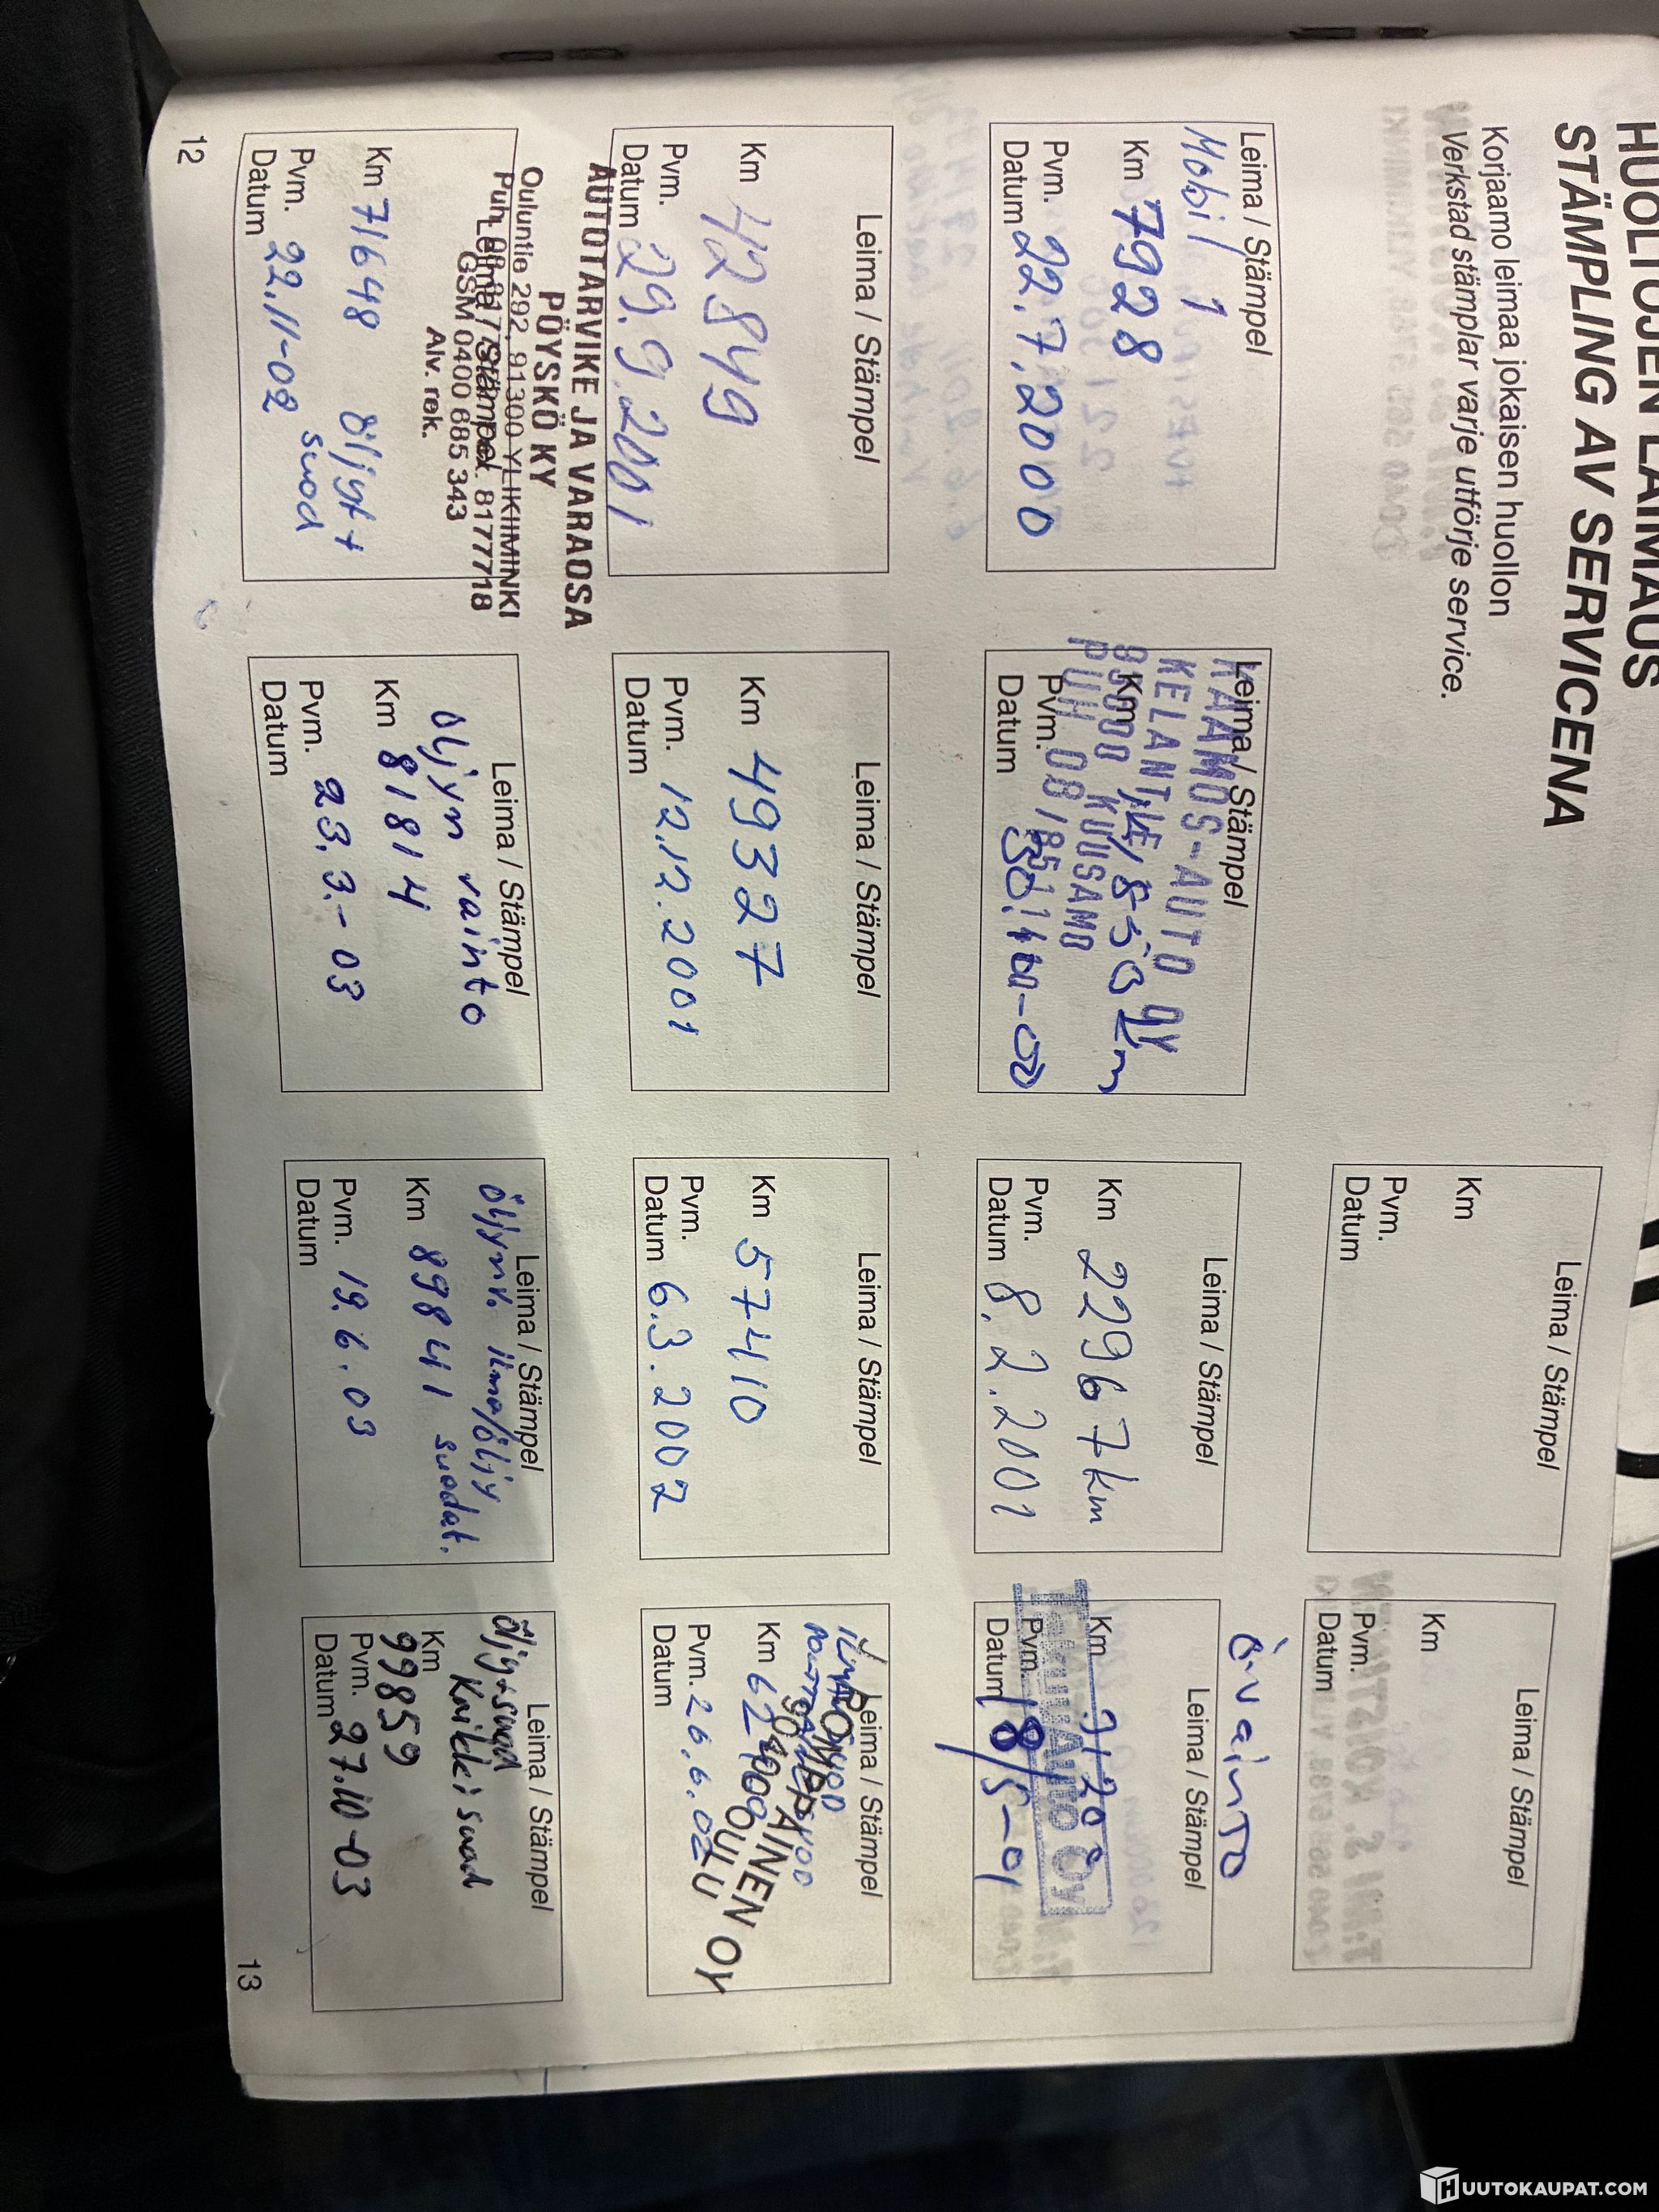 HUOLTOJEN LAIMAUS
STÄMPLING AV SERVICENA
Korjaamo leimaa jokaisen huollon
Verkstad stämplar varje utförje service.
Leima / Stämpel
Mobil 1
Km 7928
Pvm.
Datum 22.7.2000
Leima / Stämpel
KAAMOS-AUTO OY
KELANTIE
KUUSAMO
PUH 08/851
Km
Pvm.
Datum
Leima / Stämpel
Km 42849
Pvm.
Datum 29.9.2001
Leima / Stämpel
Km 49327
Pvm. 12.12.2001
Datum
AUTOTARVIKE JA VARAOSA
PÖYSKÖ KY
Ouluntie 292, 91300 YLIKIIMINKI
Puh. 8177718
Leima / Stämpel
GSM 0400 685 343
Alv. rek.
Km 71648 öljyt +
suod
Pvm. 22.11-02
Datum
12
Leima / Stämpel
öljyn vainto
Km 81814
Pvm. 23.3.-03
Datum
Leima / Stämpel
Km
Pvm.
Datum
Leima / Stämpel
Km
Pvm.
Datum
Leima / Stämpel
Km 22967 km
Pvm.
Datum 8.2.2001
ö.vainto
Leima / Stämpel
Km
TakuuAuto Oy
Pvm.
Datum 18/5-01
Leima / Stämpel
Km 57410
Pvm.
Datum 6.3.2002
Leima / Stämpel
AINEN OY
OULU
Km
Pvm. 26.6.02
Datum
Leima / Stämpel
öljynv. ilma/öljy
suodat.
Km 89841
Pvm. 19.6.03
Datum
Leima / Stämpel
öljy+suod
Kaikki suod
Km
99859
Pvm.
Datum 27.10-03
13
HUUTOKAUPAT.COM